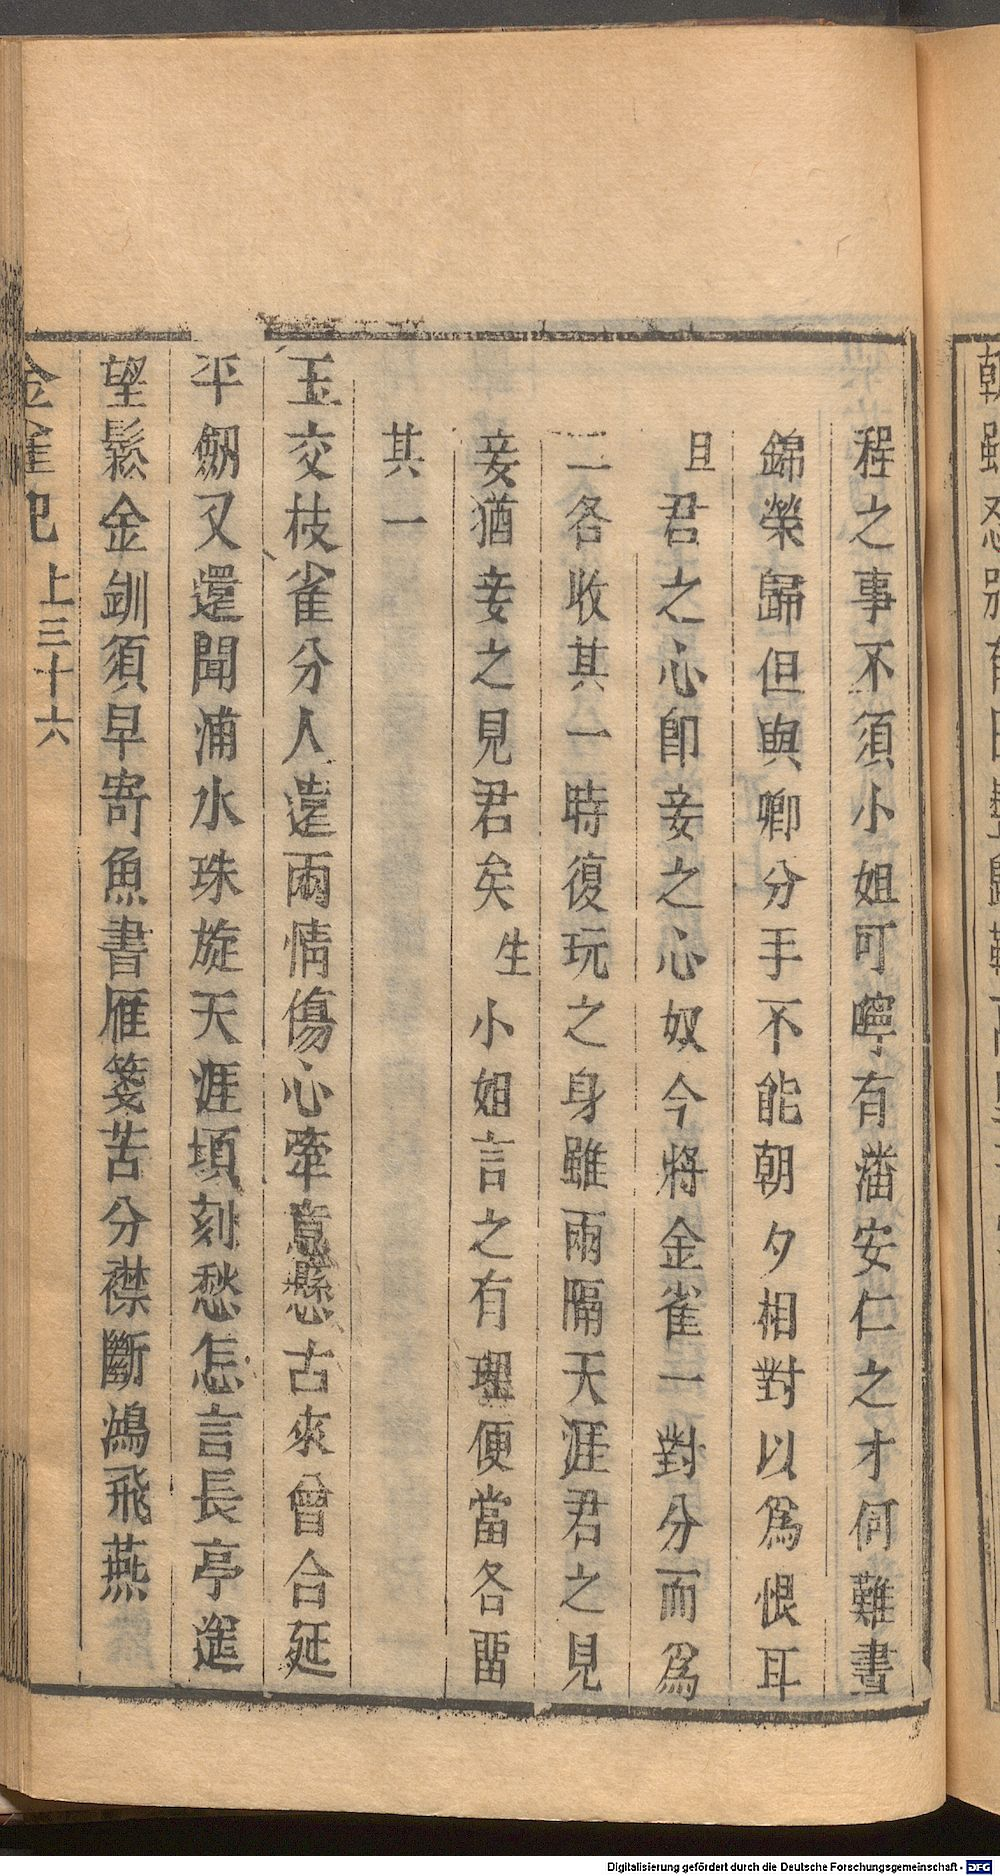 程之事不須小姐可嚀有潘安仁之才何難晝
錦榮歸但與卿分手不能朝夕相對以爲恨耳
且君之心卽妾之心奴今將金雀一對分而爲
二各收其一時復玩之身雖兩隔天涯君之見
妾猶妾之見君矣生小姐言之有理便當各畱
其一
玉交枝雀分人遠兩情傷心牽意懸古來曾合延
平劒又還聞浦水珠旋天涯頃刻愁怎言長亭進
望鬆金釧須早寄魚書雁箋苦分襟斷鴻飛燕
金雀記 上三十六
Digitalisierung gefördert durch die Deutsche Forschungsgemeinschaft - DFG